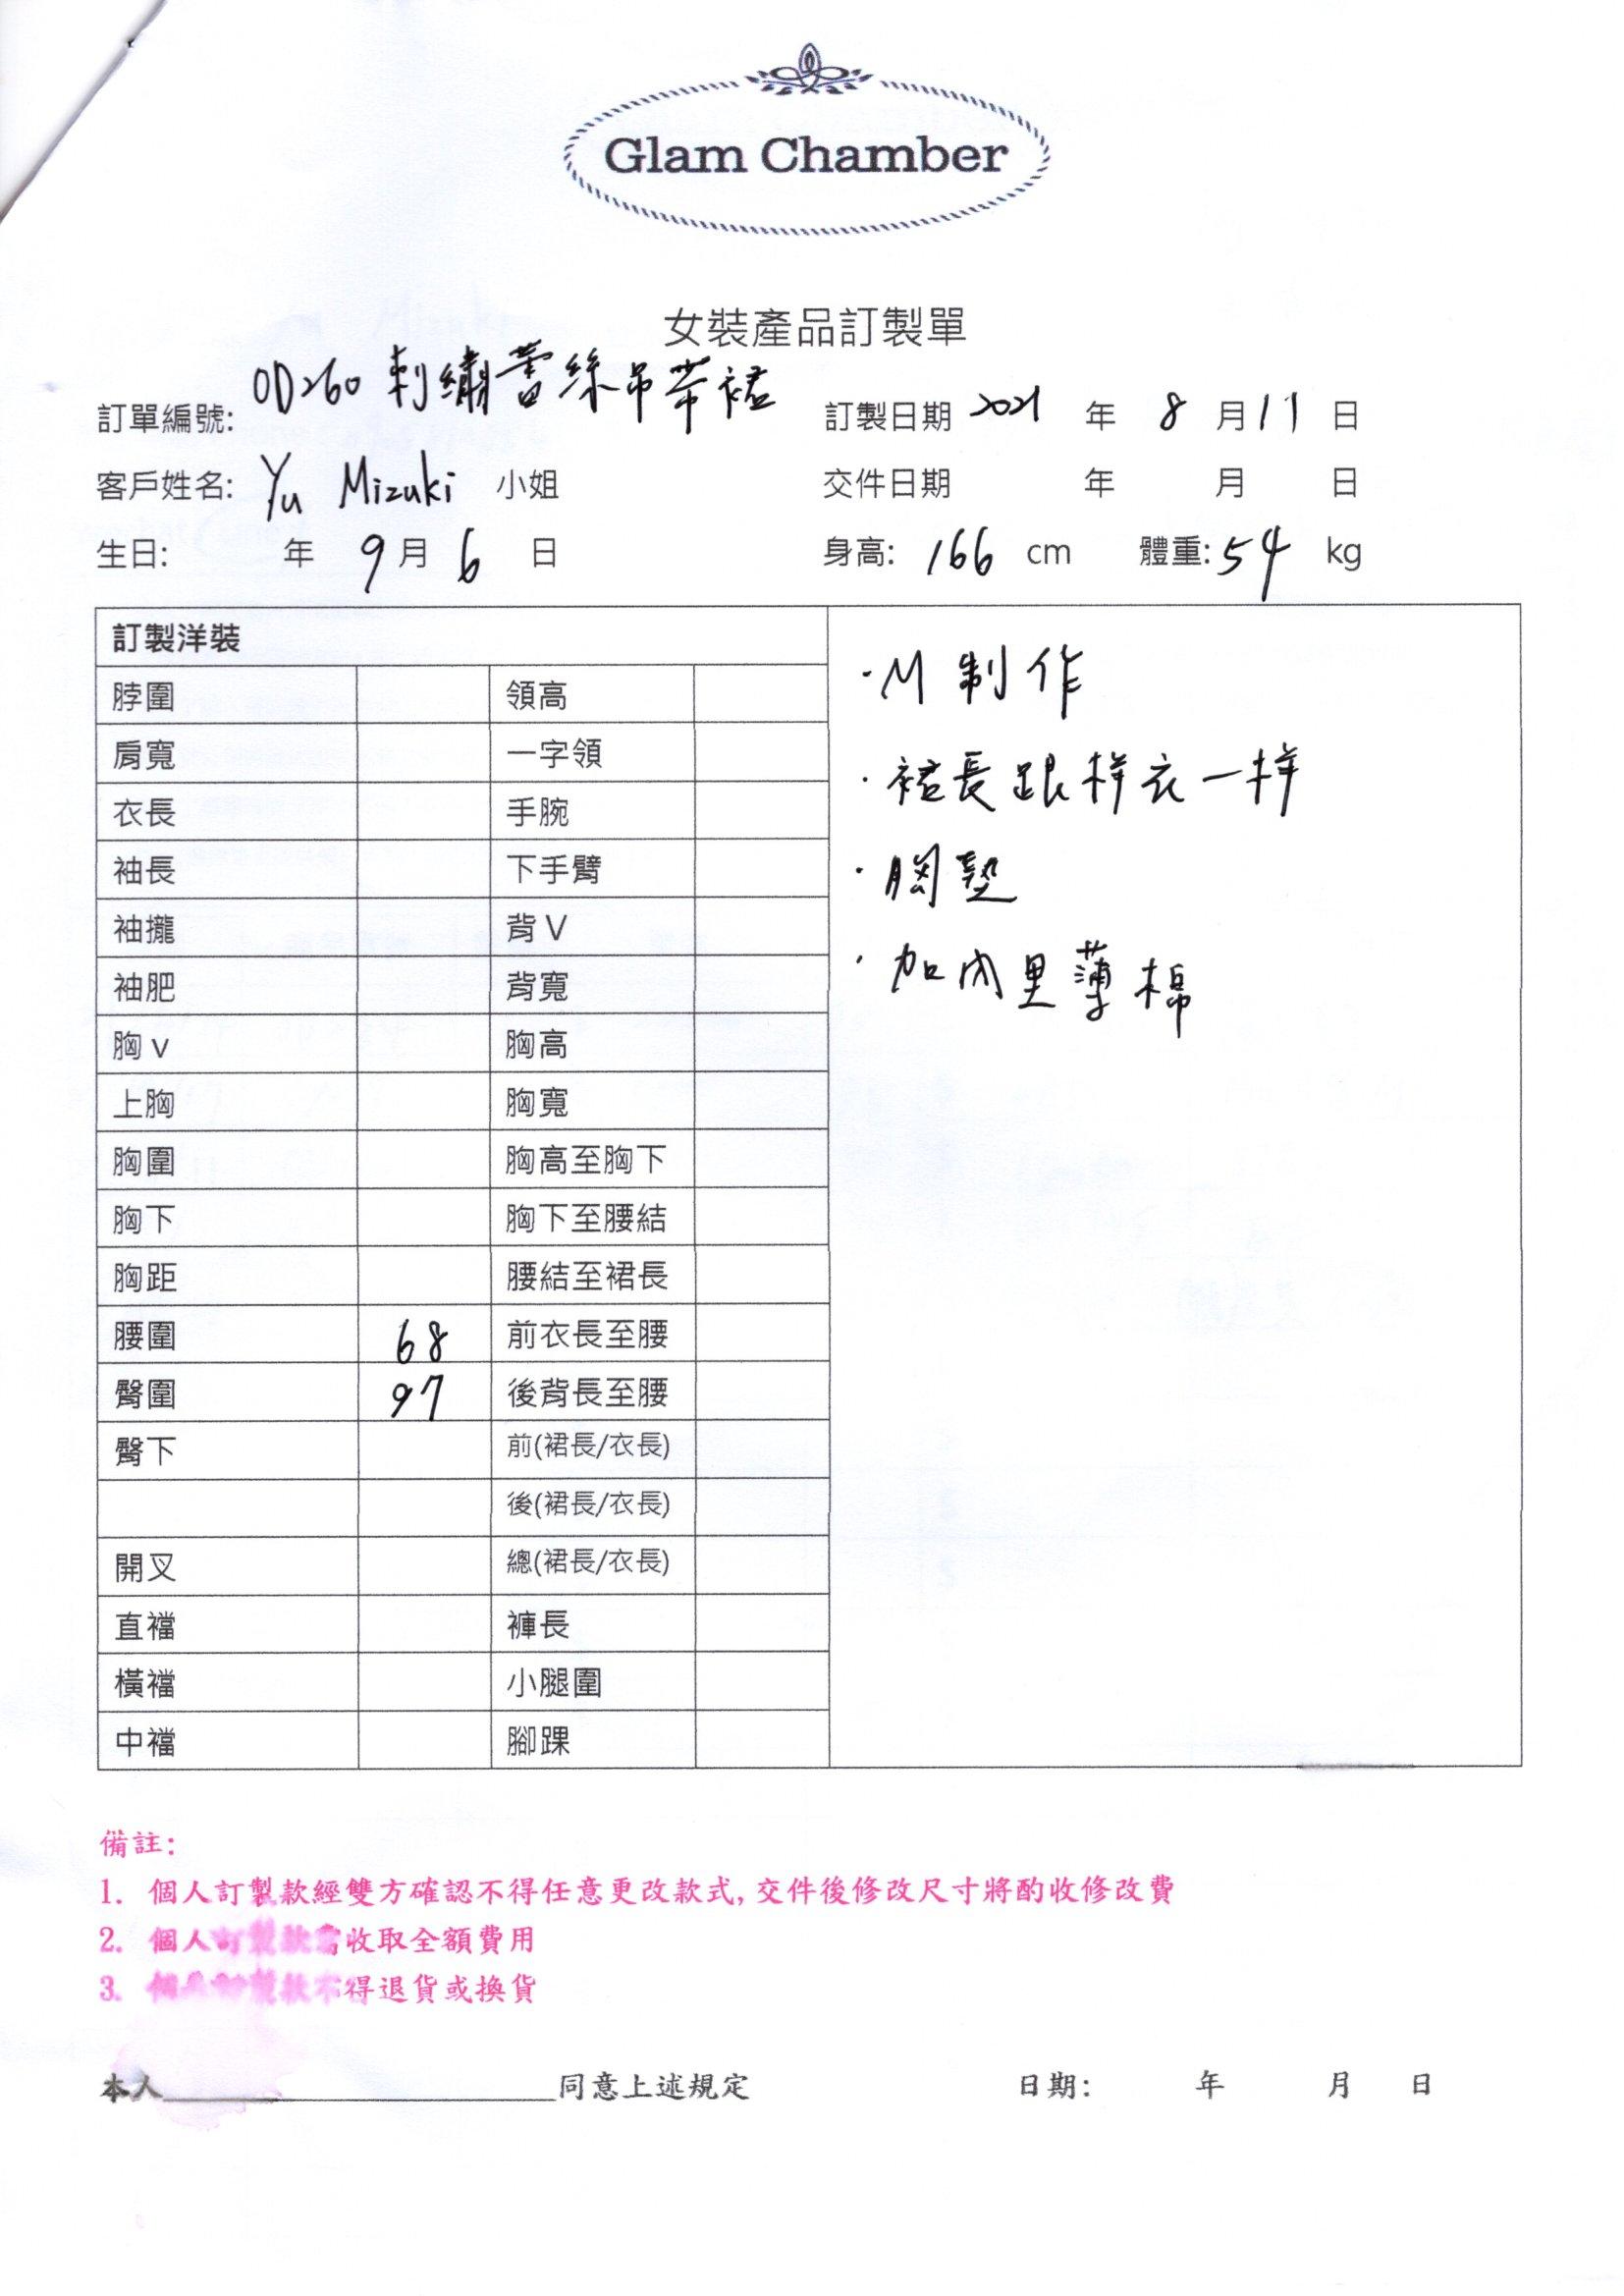 Glam Chamber
女裝產品訂製單
訂單編號: OD260 刺繡蕾絲吊带裙 訂製日期 2021 年 8 月 11 日
客戶姓名: Yu Mizuki 小姐 交件日期 年 月 日
生日: 年 9 月 6 日 身高: 166 cm 體重: 54 kg
訂製洋裝
脖圍 領高
肩寬 一字領
衣長 手腕
袖長 下手臂
袖攏 背V
袖肥 背寬
胸v 胸高
上胸 胸寬
胸圍 胸高至胸下
胸下 胸下至腰結
胸距 腰結至裙長
腰圍 68 前衣長至腰
臀圍 97 後背長至腰
臀下 前(裙長/衣長)
後(裙長/衣長)
開叉 總(裙長/衣長)
直襠 褲長
橫襠 小腿圍
中襠 腳踝
·M 制作
·裙長跟样衣一样
·胸墊
·加內里薄棉
備註:
1. 個人訂製款經雙方確認不得任意更改款式, 交件後修改尺寸將酌收修改費
2. 個人訂製款需收取全額費用
3. 個人訂製款不得退貨或換貨
本人____________同意上述規定 日期: 年 月 日